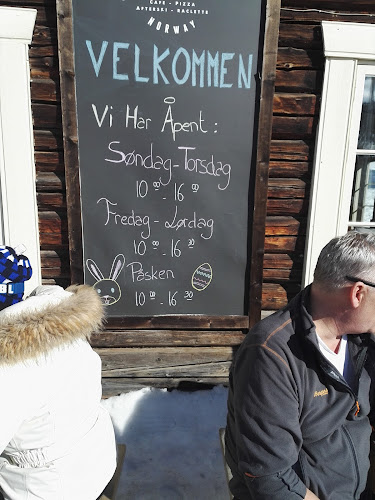 CAFE - PIZZA
AFTERSKI - RACLETTE
NORWAY
VELKOMMEN
Vi Har Åpent:
Søndag - Torsdag
10 00 - 16 00
Fredag - Lørdag
10 00 - 16 30
Påsken
10 00 - 16 30
BL